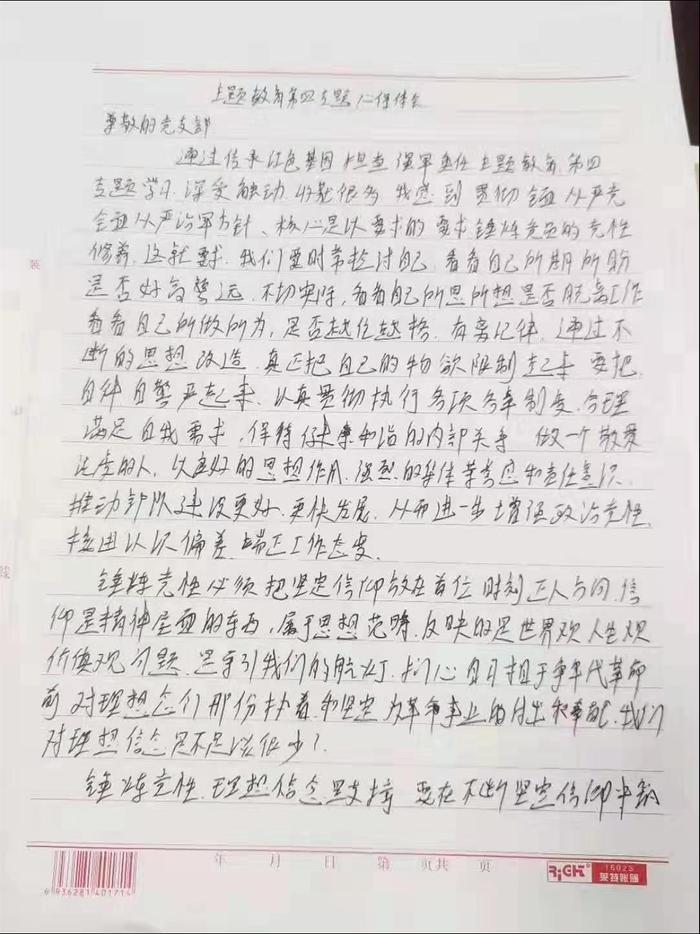 主题教育第四专题心得体会
尊敬的党支部
通过传承红色基因 担当强军重任主题教育 第四
专题学习 深受触动 收获很多 我感到 贯彻全面从严治党
全面从严治军方针、核心是以要求的要求 锤炼党员的党性
修养 这就要求 我们要时常检讨自己 看看自己所期所盼
是否好高骛远 不切实际,看看自己所思所想是否脱离工作
看看自己所做所为,是否越位越格 有离纪律 通过不
断的思想改造 真正把自己的物欲限制起来 要把
自律自警严起来 认真贯彻执行各项各章制度 合理
满足自我需求,保持健康和谐的内部关系 做一个敬畏
法度的人,以良好的思想作风 强烈的集体荣誉感和责任意识
推动部队建设更好 更快发展 从而进一步增强政治党性
摆正认识偏差 端正工作态度
锤炼党性必须把坚定信仰放在首位 时刻正人方向 信
仰是精神层面的东西,属于思想范畴 反映的是世界观人生观
价值观问题 是牵引我们的航灯 扪心自问 相于争年代革命
前 对理想念们那份执着 和坚定 为革命事业的付出和奉献 我们
对理想信念是不是谈很少?
锤炼党性 理想信念是支撑 要在不断坚定信仰中
装
线
年 月 日 第 页共 页
6936281401714
RiCHT
1602S
莱特账簿